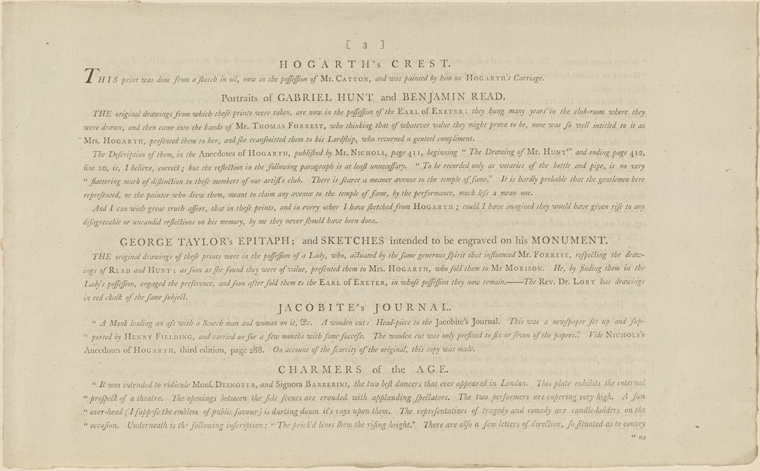 [ 3 ]
HOGARTH's CREST.
THIS print was done from a sketch in oil, now in the possession of Mr. CATTON, and was painted by him on HOGARTH's Carriage.
Portraits of GABRIEL HUNT and BENJAMIN READ.
THE original drawings from which these prints were taken, are now in the possession of the EARL of EXETER: they hung many years in the club-room where they
were drawn, and then came into the hands of Mr. THOMAS FORREST, who thinking that of whatever value they might prove to be, none was so well intitled to it as
Mrs. HOGARTH, presented them to her, and she transmitted them to his Lordship, who returned a genteel compliment.
The Description of them, in the Anecdotes of HOGARTH, published by Mr. NICHOLS, page 411, beginning " The Drawing of Mr. HUNT," and ending page 412,
line 10, is, I believe, correct; but the reflection in the following paragraph is at least unnecessary. " To be recorded only as votaries of the bottle and pipe, is no very
" flattering mark of distinction to these members of our artist's club. There is scarce a meaner avenue to the temple of fame." It is hardly probable that the gentlemen here
represented, or the painter who drew them, meant to claim any avenue to the temple of fame, by the performance, much less a mean one.
And I can with great truth assert, that in these prints, and in every other I have sketched from HOGARTH; could I have imagined they would have given rise to any
disagreeable or uncandid reflections on his memory, by me they never should have been done.
GEORGE TAYLOR's EPITAPH; and SKETCHES intended to be engraved on his MONUMENT.
THE original drawings of these prints were in the possession of a Lady, who, actuated by the same generous spirit that influenced Mr. FORREST, respecting the draw-
ings of READ and HUNT; as soon as she found they were of value, presented them to Mrs. HOGARTH, who sold them to Mr MORISON. He, by finding them in the
Lady's possession, engaged the preference, and soon after sold them to the EARL of EXETER, in whose possession they now remain.——The Rev. Dr. LORT has drawings
in red chalk of the same subject.
JACOBITE's JOURNAL.
" A Monk leading an ass with a Scotch man and woman on it, &c. A wooden cut: Head-piece to the Jacobite's Journal. This was a newspaper set up and sup-
" ported by HENRY FIELDING, and carried on for a few months with some success. The wooden cut was only prefixed to six or seven of the papers." Vide NICHOLS's
Anecdotes of HOGARTH, third edition, page 288. On account of the scarcity of the original, this copy was made.
CHARMERS of the AGE.
" It was intended to ridicule Mons. DESNOYER, and Signora BARBERINI, the two best dancers that ever appeared in London. This plate exhibits the internal
" prospect of a theatre. The openings between the side scenes are crouded with applauding spectators. The two performers are capering very high. A sun
" over-head (I suppose the emblem of public favour) is darting down it's rays upon them. The representatives of tragedy and comedy are candle-holders on the
" occasion. Underneath is the following inscription: " The prick'd lines shew the rising height." There are also a few letters of direction, so situated as to convey
" no